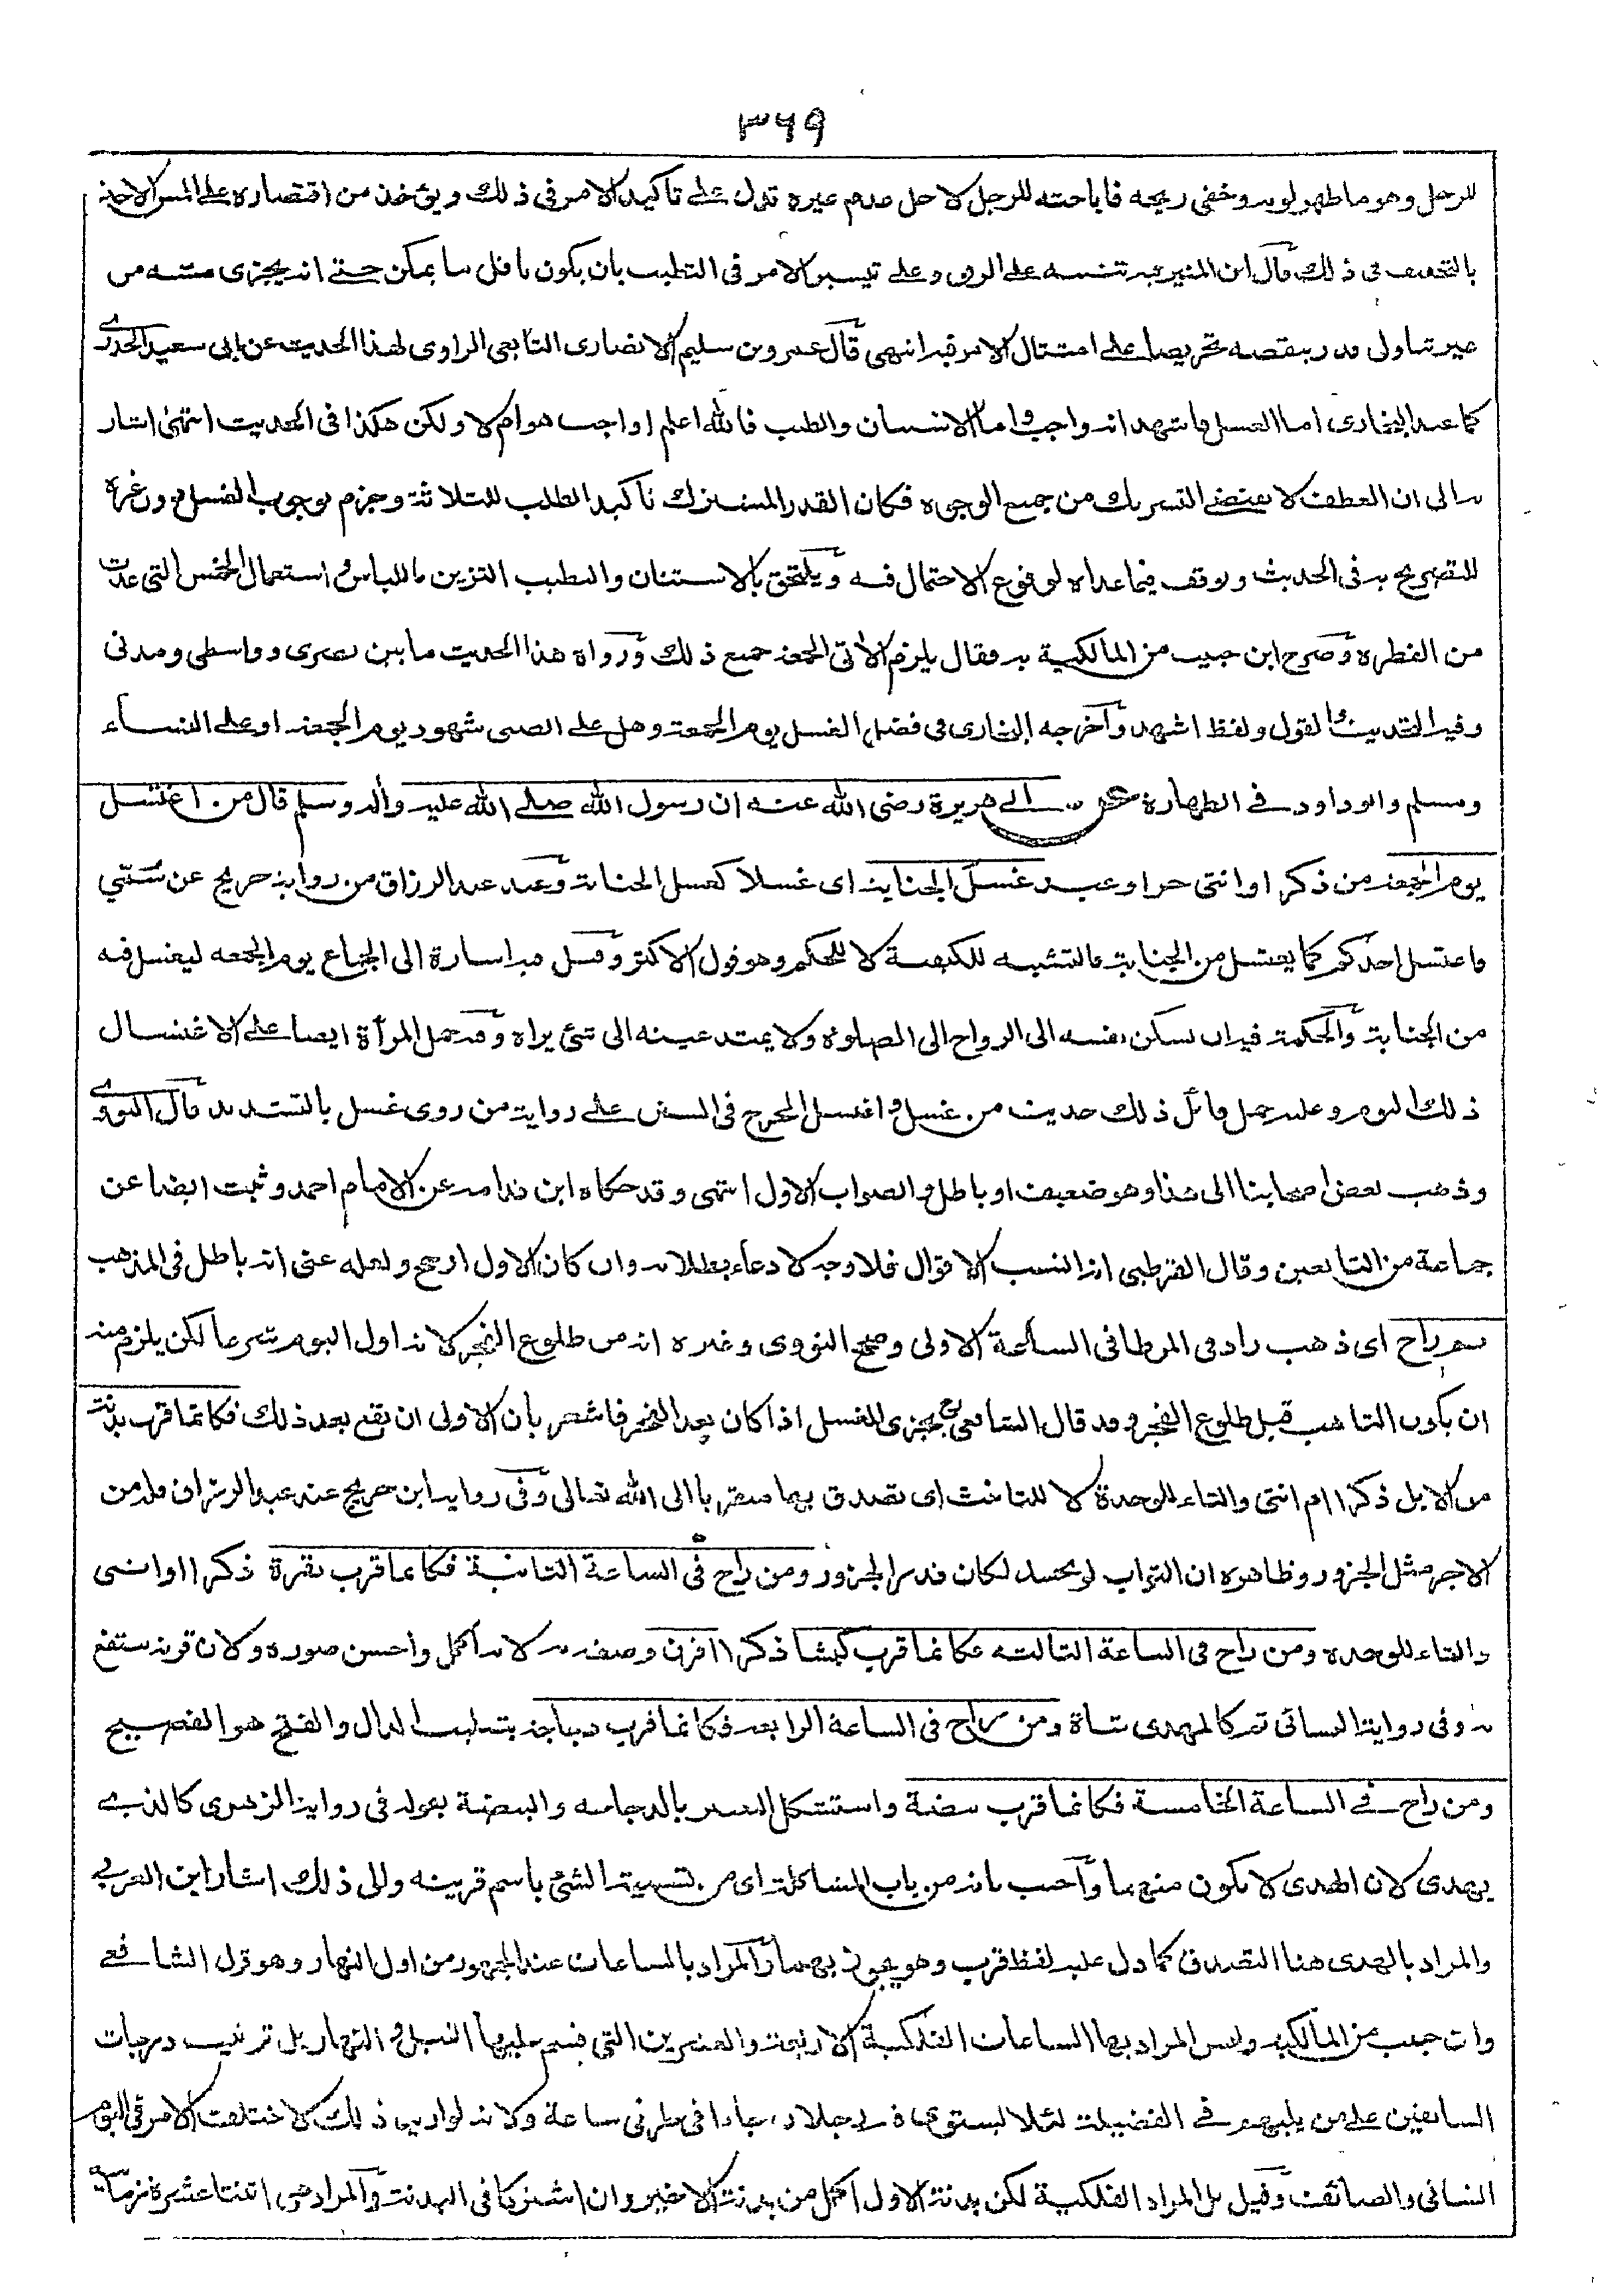 ٣٦٩
للرجل وهو ما ظهر لونه وخفى ريحه فاباحته للرجل لاجل عدم غيره تدل على تاكيد الامر فى ذلك ويؤخذ من اقتصاره على المس الاخذ
بالتخفيف فى ذلك قال ابن المنير فيه تنبيه على الرفق وعلى تيسير الامر فى التطيب بان يكون باقل ما يمكن حتى انه يجزى مسه من
غير تناول قدر ينقصه تحريضا على امتثال الامر فيه انتهى قال عمرو بن سليم الانصارى التابعى الراوى لهذا الحديث عن ابى سعيد الخدرى
كما عند البخارى اما الغسل فاشهد انه واجب واما الاستنان والطيب فالله اعلم اواجب هو ام لا ولكن هكذا فى الحديث انتهى اشار
به الى ان العطف لا يقتضى التشريك من جميع الوجوه فكان القدر المشترك تاكيد الطلب للثلاثة وجزم بوجوب الغسل دون غيره
للتصريح به فى الحديث وتوقف فيما عداه لوقوع الاحتمال فيه ويلتحق بالاستنان والتطيب التزين باللباس واستعمال الخمس التى عدت
من الفطره وصرح ابن حبيب من المالكية به فقال يلزم الاتى الجمعة جميع ذلك ورواة هذا الحديث ما بين بصرى وواسطى ومدنى
وفيه التحديث والقول ولفظ اشهد وأخرجه البخارى فى فضل الغسل يوم الجمعة وهل على الصبى شهود يوم الجمعة او على النساء
ومسلم وابو داود فى الطهارة عن ابى هريرة رضى الله عنه ان رسول الله صلى الله عليه وآله وسلم قال من اغتسل
يوم الجمعة من ذكر او انثى حر او عبد غسل الجنابة اى غسلا كغسل الجنابة وعند عبد الرزاق من رواية جريج عن سمى
فاغتسل احدكم كما يغتسل من الجنابة فالتشبيه للكيفية لا للحكم وهو قول الاكثر وقيل فيه اشارة الى الجماع يوم الجمعه ليغتسل فيه
من الجنابة والحكمة فيه ان تسكن نفسه الى الرواح الى الصلوة ولا يمتد عينه الى شئ يراه وفيه حمل المرأة ايضا على الاغتسال
ذلك اليوم وعليه حمل قائل ذلك حديث من غسل واغتسل المخرج فى السنن على رواية من روى غسل بالتشديد قال النووى
وذهب بعض اصحابنا الى هذا وهو ضعيف او باطل والصواب الاول انتهى وقد حكاه ابن قدامه عن الامام احمد وثبت ايضا عن
جماعة من التابعين وقال القرطبى انه انسب الاقوال فلا وجه لادعاء بطلانه وان كان الاول ارجح ولعله عنى انه باطل فى المذهب
ثم راح اى ذهب زاد فى الموطا فى الساعة الاولى وصحح النووى وغيره انه من طلوع الفجر لانه اول اليوم شرعا لكن يلزم منه
ان يكون التاهب قبل طلوع الفجر وقد قال الشافعى يجزى الغسل اذا كان بعد الفجر فاشعر بأن الاولى ان يقع بعد ذلك فكانما قرب بدنة
من الابل ذكرا ام انثى والتاء للوحدة لا للتانيث اى تصدق بها متقربا الى الله تعالى وفى رواية ابن جريج عند عبد الرزاق فله من
الاجر مثل الجزور وظاهره ان الثواب لو تجسد لكان قدر الجزور ومن راح فى الساعة الثانية فكانما قرب بقرة ذكرا او انثى
والتاء للوحده ومن راح فى الساعة الثالثه فكانما قرب كبشا ذكرا اقرن وصفه به لانه اكمل واحسن صوره ولان قرنه ينتفع
به وفى رواية النسائى ثم كالمهدى شاة ومن راح فى الساعة الرابعة فكانما قرب دجاجة بتثليث الدال والفتح هو الفصيح
ومن راح فى الساعة الخامسة فكانما قرب بيضة واستشكل التعبير بالدجاجه والبيضة بقوله فى رواية الزهرى كالذى
يهدى لان الهدى لا يكون منهما وأجيب بانه من باب المشاكلة اى من تسمية الشئ باسم قرينه والى ذلك اشار ابن العربى
والمراد بالهدى هنا التصدق كما دل عليه لفظ قرب وهو يجوز بهما والمراد بالساعات عند الجمهور من اول النهار وهو قول الشافعى
وابن حبيب من المالكية وليس المراد بها الساعات الفلكية الاربعة والعشرين التى قسم عليها الليل والنهار بل ترتيب درجات
السابقين على من يليهم فى الفضيلة لئلا يستوى فيه رجلان جاءا فى طرفى ساعة ولانه لو اريد ذلك لاختلف الامر فى اليوم
الشاتى والصائف وقيل بل المراد الفلكية لكن بدنة الاول اكمل من بدنة الاخير وان اشتركا فى البدنة والمراد من اثنتا عشرة زمانية